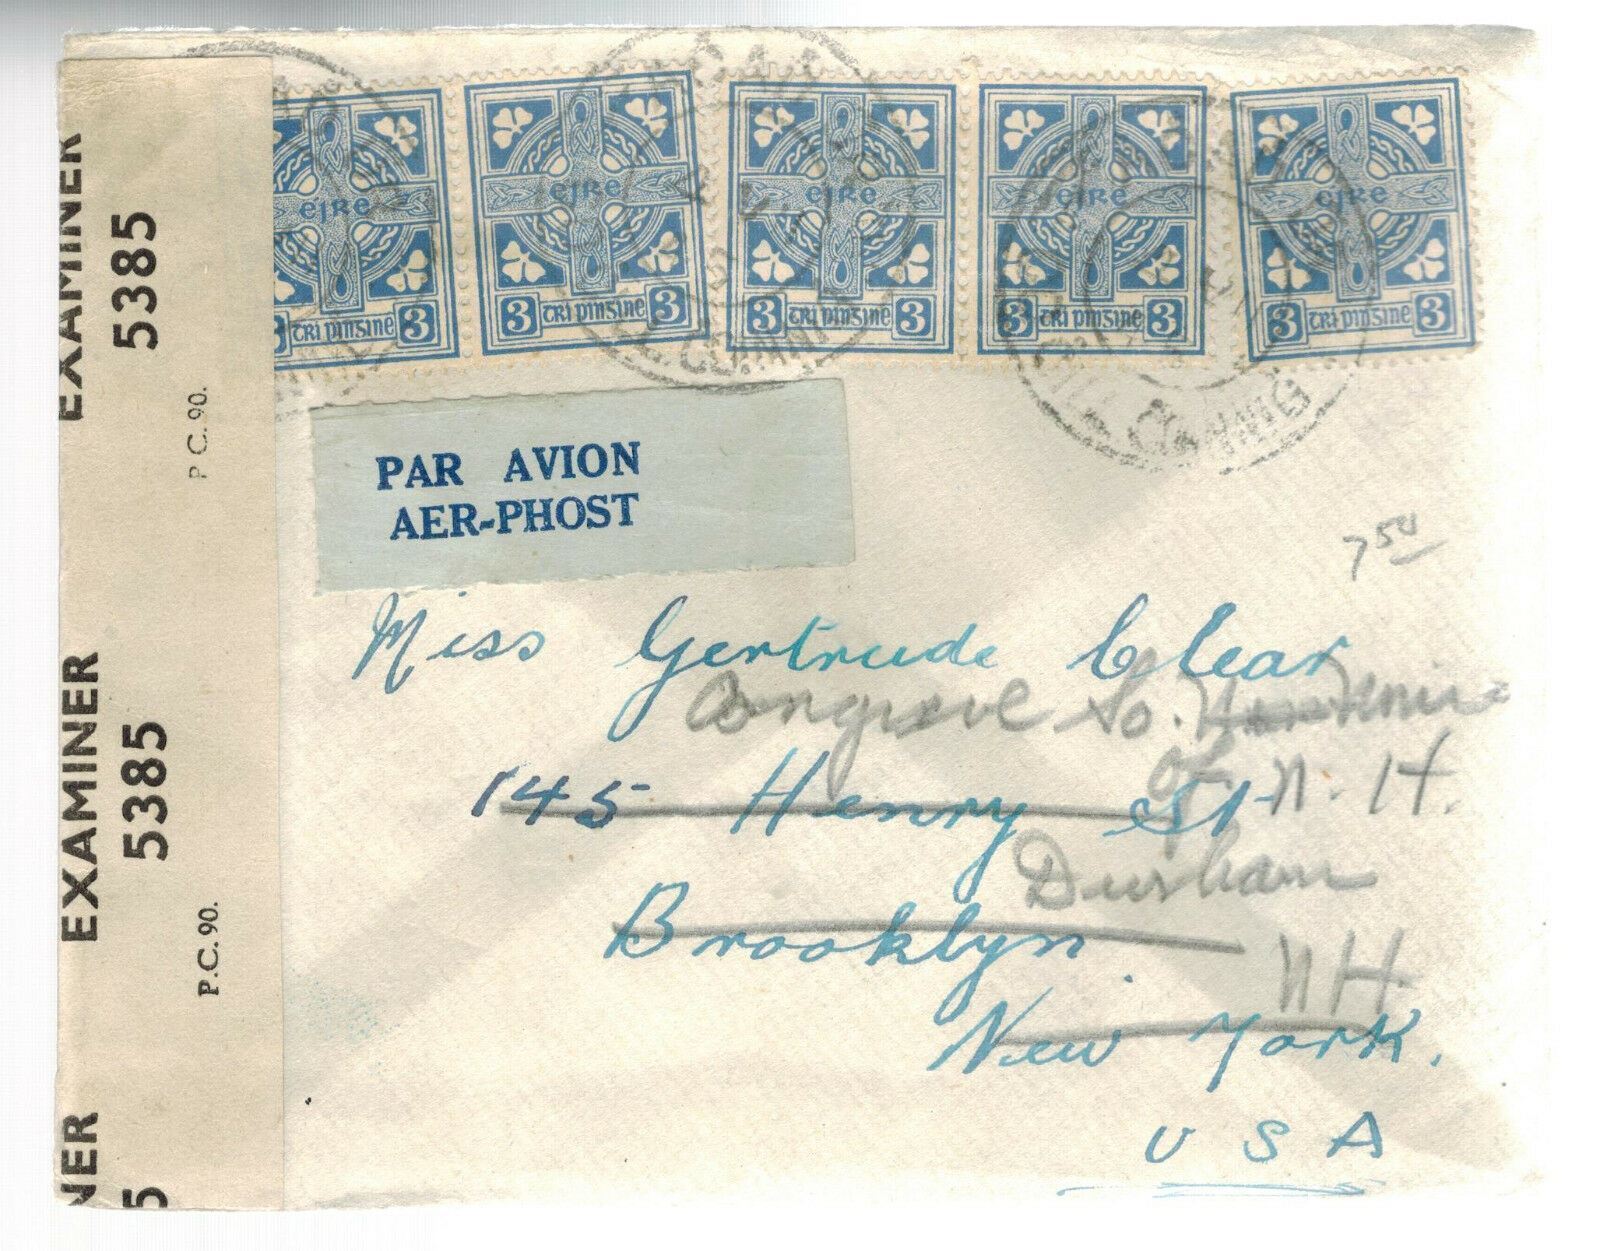 EXAMINER
5385
P.C. 90.
EXAMINER
5385
P.C. 90.
NER
5
éire
3 trí pinsine 3
éire
3 trí pinsine 3
éire
3 trí pinsine 3
éire
3 trí pinsine 3
éire
3 trí pinsine 3
PAR AVION
AER-PHOST
7 50
Miss Gertrude Clear
So.
of N. H.
145 Henry St
Durham
Brooklyn.
NH
New York.
U S A